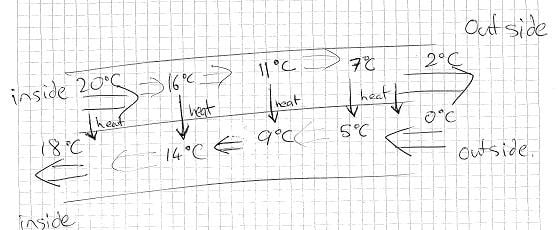 Outside
inside 20°C 16°C 11°C 7°C 2°C
heat heat heat heat
18°C 14°C 9°C 5°C 0°C
outside.
inside